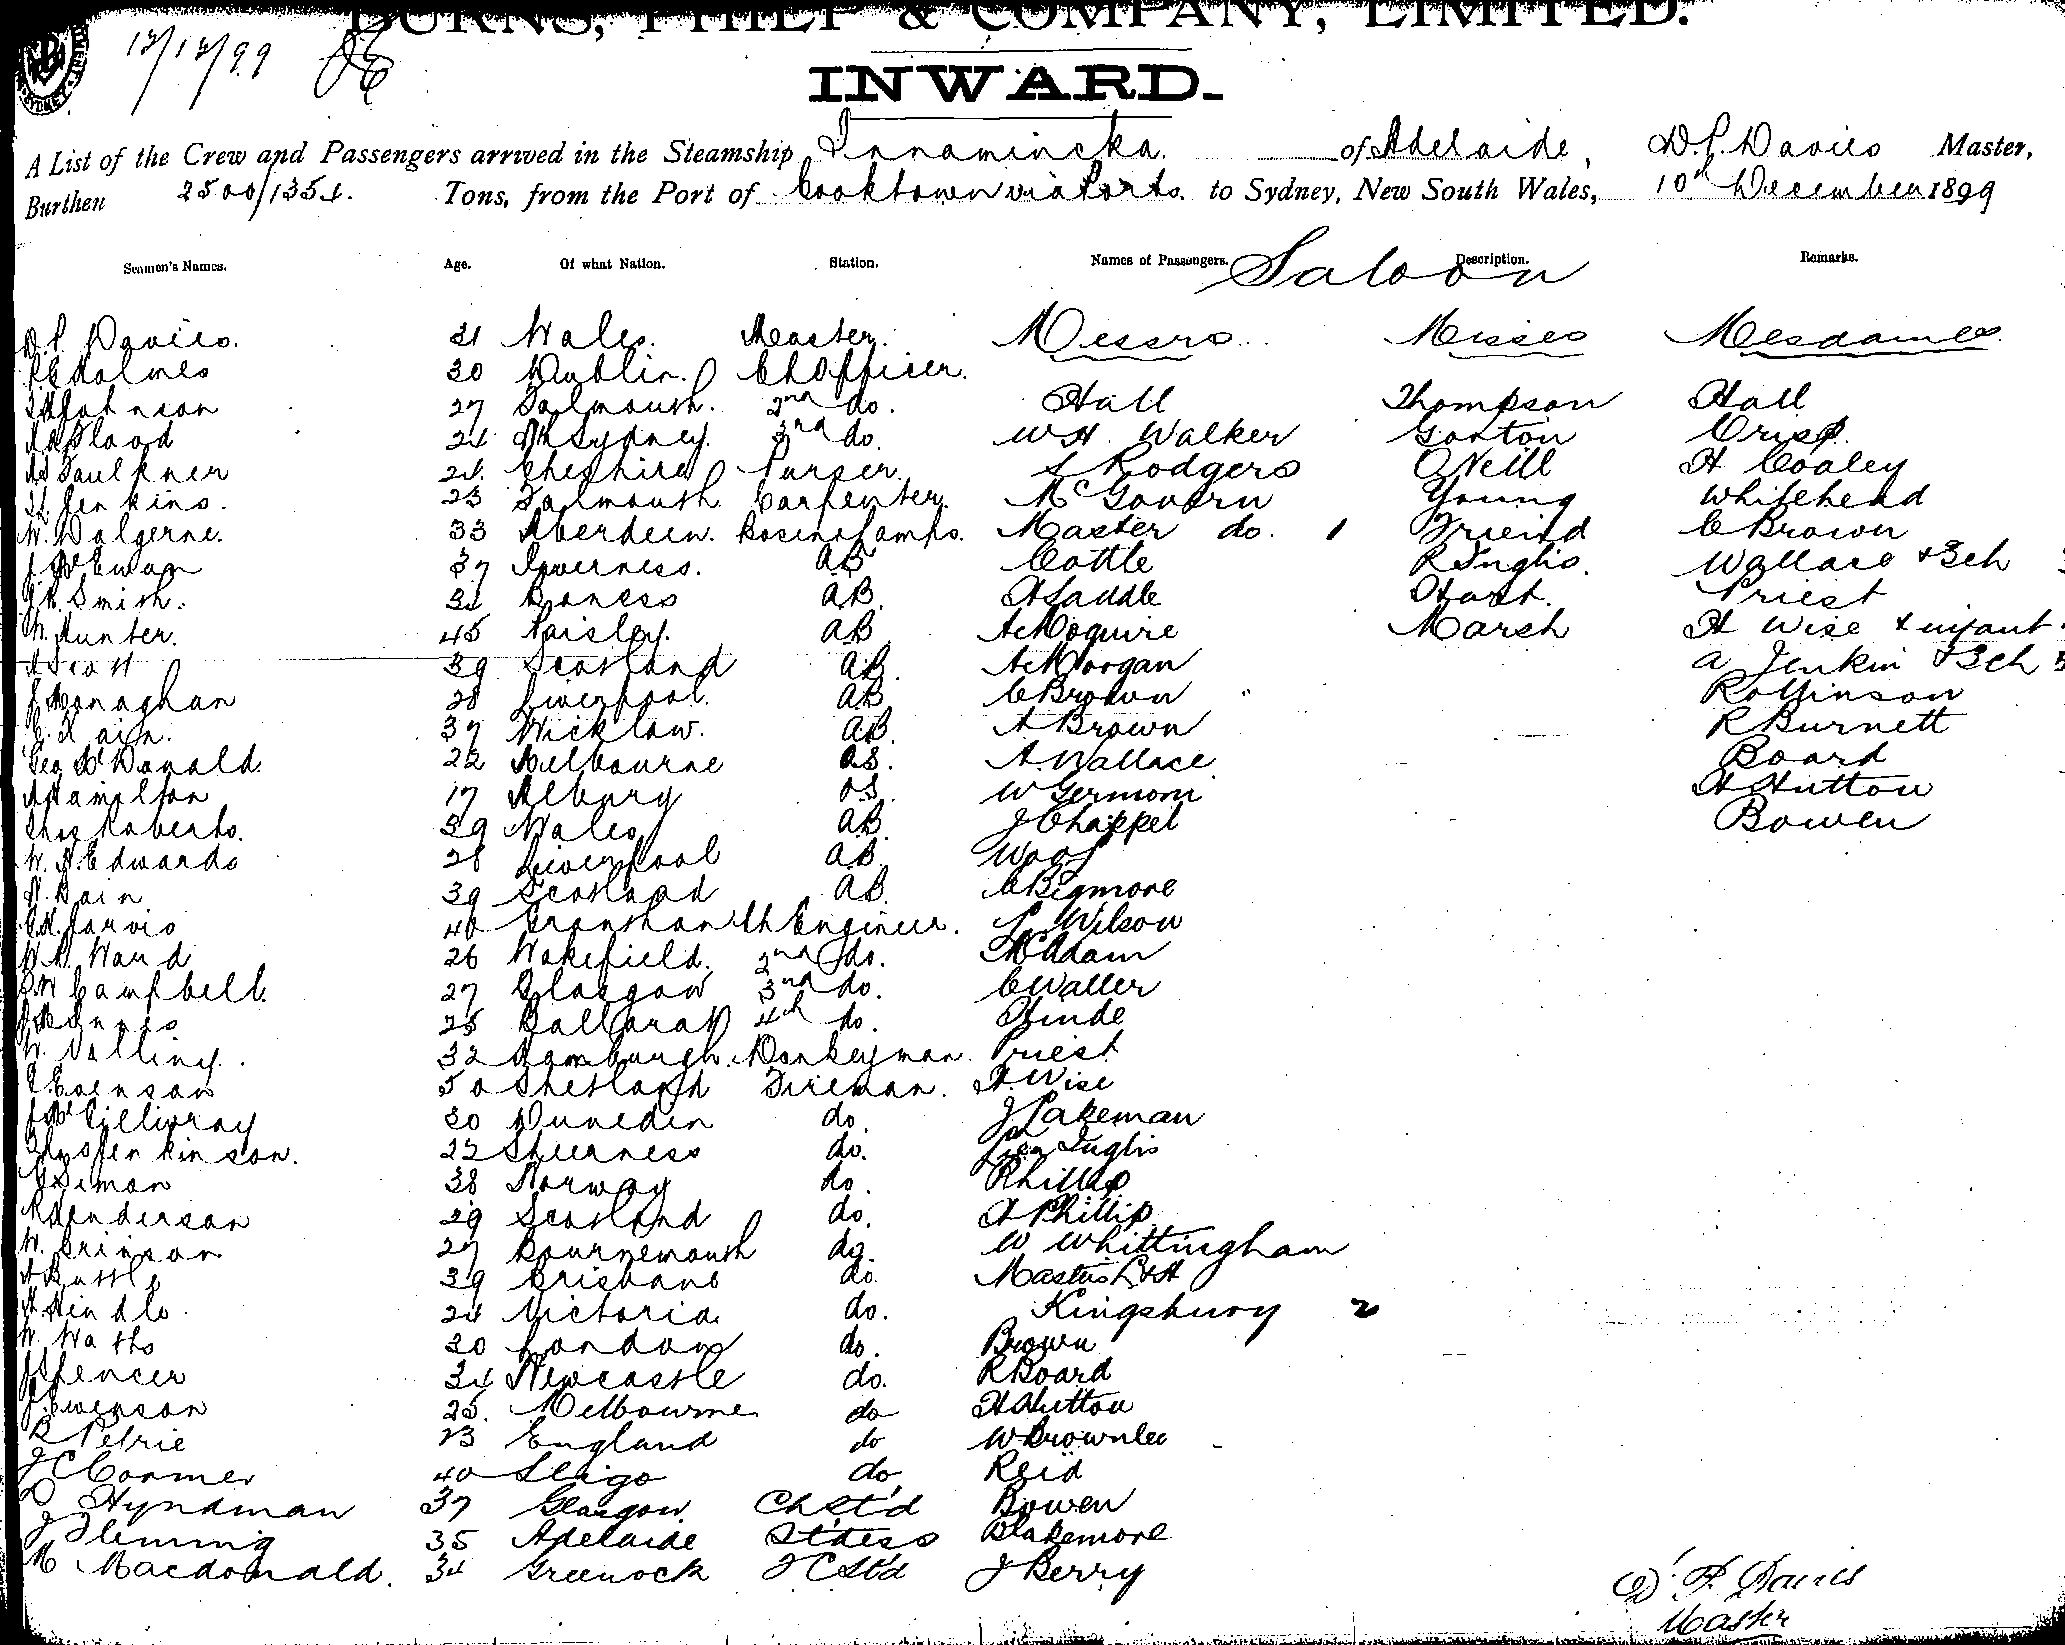 BURNS, PHILP & COMPANY, LIMITED.
12/12/99
INWARD.
A List of the Crew and Passengers arrived in the Steamship Innamincka. of Adelaide, D.P. Davies Master,
Burthen 2500/1354. Tons, from the Port of Cooktown via Ports. to Sydney, New South Wales, 10th December 1899
Seamen's Names. Age. Of what Nation. Station. Names of Passengers. Description. Remarks.
Saloon
D.P. Davies. 31 Wales. Master. Messrs. Misses Mesdames
Holmes 30 Dublin. Ch Officer.
Johnson 27 Falmouth. 2nd do. Hall Thompson Hall
Blood 24 Nth Sydney. 3rd do. W H Walker Gorton Crisp.
Faulkner 24 Cheshire Purser. Rodgers O'Neill H Cooley
Jenkins. 23 Falmouth Carpenter. McGovern Young Whitehead
W. Dalgerne. 33 Aberdeen. Bosun & Lamps. Master do. 1 Friend C Brown
J. McEwan 37 Inverness. AB Cottle R Inglis. Wallace & 3 ch
Smith. 34 Boness AB. H Saddle Hart. Priest
Hunter. 45 Paisley. AB A McGguire Marsh H Wise & infant
Scott 39 Scotland AB. A Morgan A Jenkin & 3 ch
J Monaghan 28 Liverpool. AB C Brown Rollinson
Kain. 37 Wicklaw. AB. A Brown R Burnett
Geo McDonald. 22 Melbourne OS. A. Wallace Board
Hamilton 17 Albury OS. W Germom H Hutton
Chas Roberts. 39 Wales AB. J Chappel Bowen
W. H. Edwards 28 Liverpool AB. Woof
Bain 39 Scotland AB. C Bigmore
Jarvis 40 Grantham Ch Engineer. Wilson
Ward 26 Wakefield. 2nd do. McAdam
Campbell. 27 Glasgow 3rd do. C Waller
25 Ballarat 4th do. Hinde
W. Dolling. 32 Hamburgh. Donkeyman. Priest
Evenson 50 Shetland Fireman. H. Wise
J McGillivray 30 Dunedin do. J Pakeman
Thos Jenkinson. 22 Sheerness do. Geo Inglis
38 Norway do. Phillip
Henderson 29 Scotland do. A Phillip
W. Brinson 27 Bournemouth do. W Whittingham
39 Brisbane do. Masters L & H
Hindle. 24 Victoria do. Kingsbury 2
W. Watts 30 London do. Brown
J Spencer 34 Newcastle do. R Board
J. Swenson 25. Melbourne do H Hutton
R Petrie 23 England do W Brownlee
J C Cormer 40 Sligo do, Reid
D Hyndman 37 Glasgow Ch St'd Bowen
J Fleming 35 Adelaide St'dess Blakemore
M Macdonald. 34 Greenock F C St'd J Berry
D. P. Davies
Master